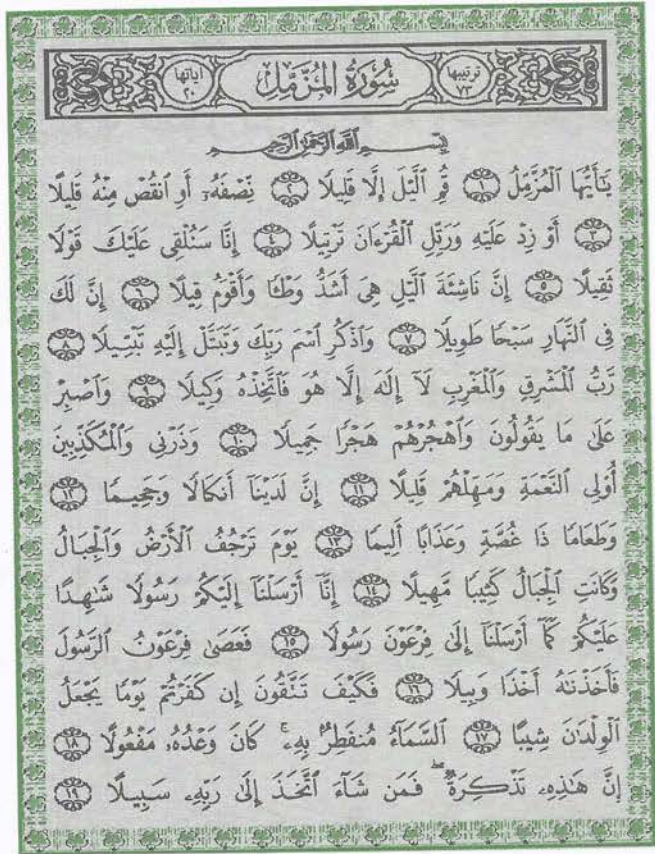 ترتيبها ٧٣ سُورَةُ المُزَّمِّلِ اياتها ٢٠
بِسْمِ اللَّهِ الرَّحْمَٰنِ الرَّحِيمِ
يَٰٓأَيُّهَا ٱلْمُزَّمِّلُ ١ قُمِ ٱلَّيْلَ إِلَّا قَلِيلًا ٢ نِّصْفَهُۥٓ أَوِ ٱنقُصْ مِنْهُ قَلِيلًا
٣ أَوْ زِدْ عَلَيْهِ وَرَتِّلِ ٱلْقُرْءَانَ تَرْتِيلًا ٤ إِنَّا سَنُلْقِى عَلَيْكَ قَوْلًا
ثَقِيلًا ٥ إِنَّ نَاشِئَةَ ٱلَّيْلِ هِىَ أَشَدُّ وَطْـًٔا وَأَقْوَمُ قِيلًا ٦ إِنَّ لَكَ
فِى ٱلنَّهَارِ سَبْحًا طَوِيلًا ٧ وَٱذْكُرِ ٱسْمَ رَبِّكَ وَتَبَتَّلْ إِلَيْهِ تَبْتِيلًا ٨
رَّبُّ ٱلْمَشْرِقِ وَٱلْمَغْرِبِ لَآ إِلَٰهَ إِلَّا هُوَ فَٱتَّخِذْهُ وَكِيلًا ٩ وَٱصْبِرْ
عَلَىٰ مَا يَقُولُونَ وَٱهْجُرْهُمْ هَجْرًا جَمِيلًا ١٠ وَذَرْنِى وَٱلْمُكَذِّبِينَ
أُو۟لِى ٱلنَّعْمَةِ وَمَهِّلْهُمْ قَلِيلًا ١١ إِنَّ لَدَيْنَآ أَنكَالًا وَجَحِيمًا ١٢
وَطَعَامًا ذَا غُصَّةٍ وَعَذَابًا أَلِيمًا ١٣ يَوْمَ تَرْجُفُ ٱلْأَرْضُ وَٱلْجِبَالُ
وَكَانَتِ ٱلْجِبَالُ كَثِيبًا مَّهِيلًا ١٤ إِنَّآ أَرْسَلْنَآ إِلَيْكُمْ رَسُولًا شَٰهِدًا
عَلَيْكُمْ كَمَآ أَرْسَلْنَآ إِلَىٰ فِرْعَوْنَ رَسُولًا ١٥ فَعَصَىٰ فِرْعَوْنُ ٱلرَّسُولَ
فَأَخَذْنَٰهُ أَخْذًا وَبِيلًا ١٦ فَكَيْفَ تَتَّقُونَ إِن كَفَرْتُمْ يَوْمًا يَجْعَلُ
ٱلْوِلْدَٰنَ شِيبًا ١٧ ٱلسَّمَآءُ مُنفَطِرٌۢ بِهِۦ ۚ كَانَ وَعْدُهُۥ مَفْعُولًا ١٨
إِنَّ هَٰذِهِۦ تَذْكِرَةٌ ۖ فَمَن شَآءَ ٱتَّخَذَ إِلَىٰ رَبِّهِۦ سَبِيلًا ١٩